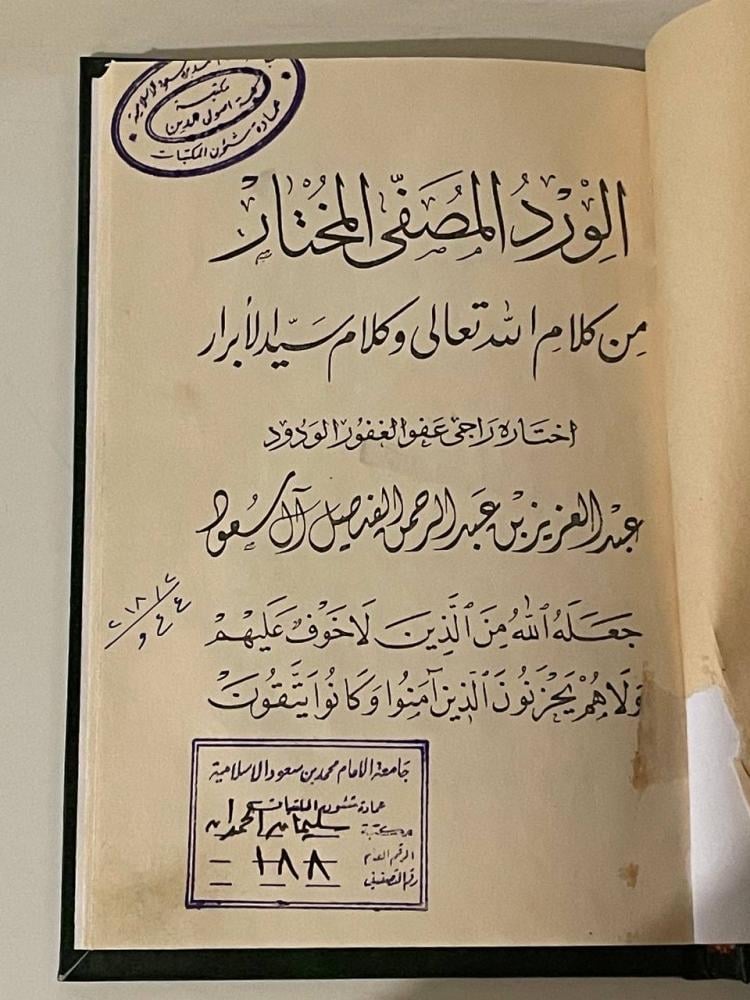 مكتبة
كلية اصول الدين
عمادة شؤون المكتبات
الوِردُ المُصَفّى المُختار
مِن كلامِ الله تعالى وكلام سَيّد الأبرار
اختَارهُ رَاجي عَفو الغفُور الوَدُود
عبْد العزيز بن عَبد الرحمن الفيصل آل سُعود
جعَلَهُ اللهُ مِنَ الَّذِينَ لَا خَوْفٌ عَلَيهِمْ
وَلَا هُمْ يَحْزَنُونَ الَّذِينَ آمَنُوا وَكَانُوا يَتَّقُونَ
٢١٨١٢
٩٤٤
جامعة الامام محمد بن سعود الاسلامية
عمادة شئون المكتبات
مكتبة سليمان الحمدان
الرقم العام ١٨٨
رقم التصنيف